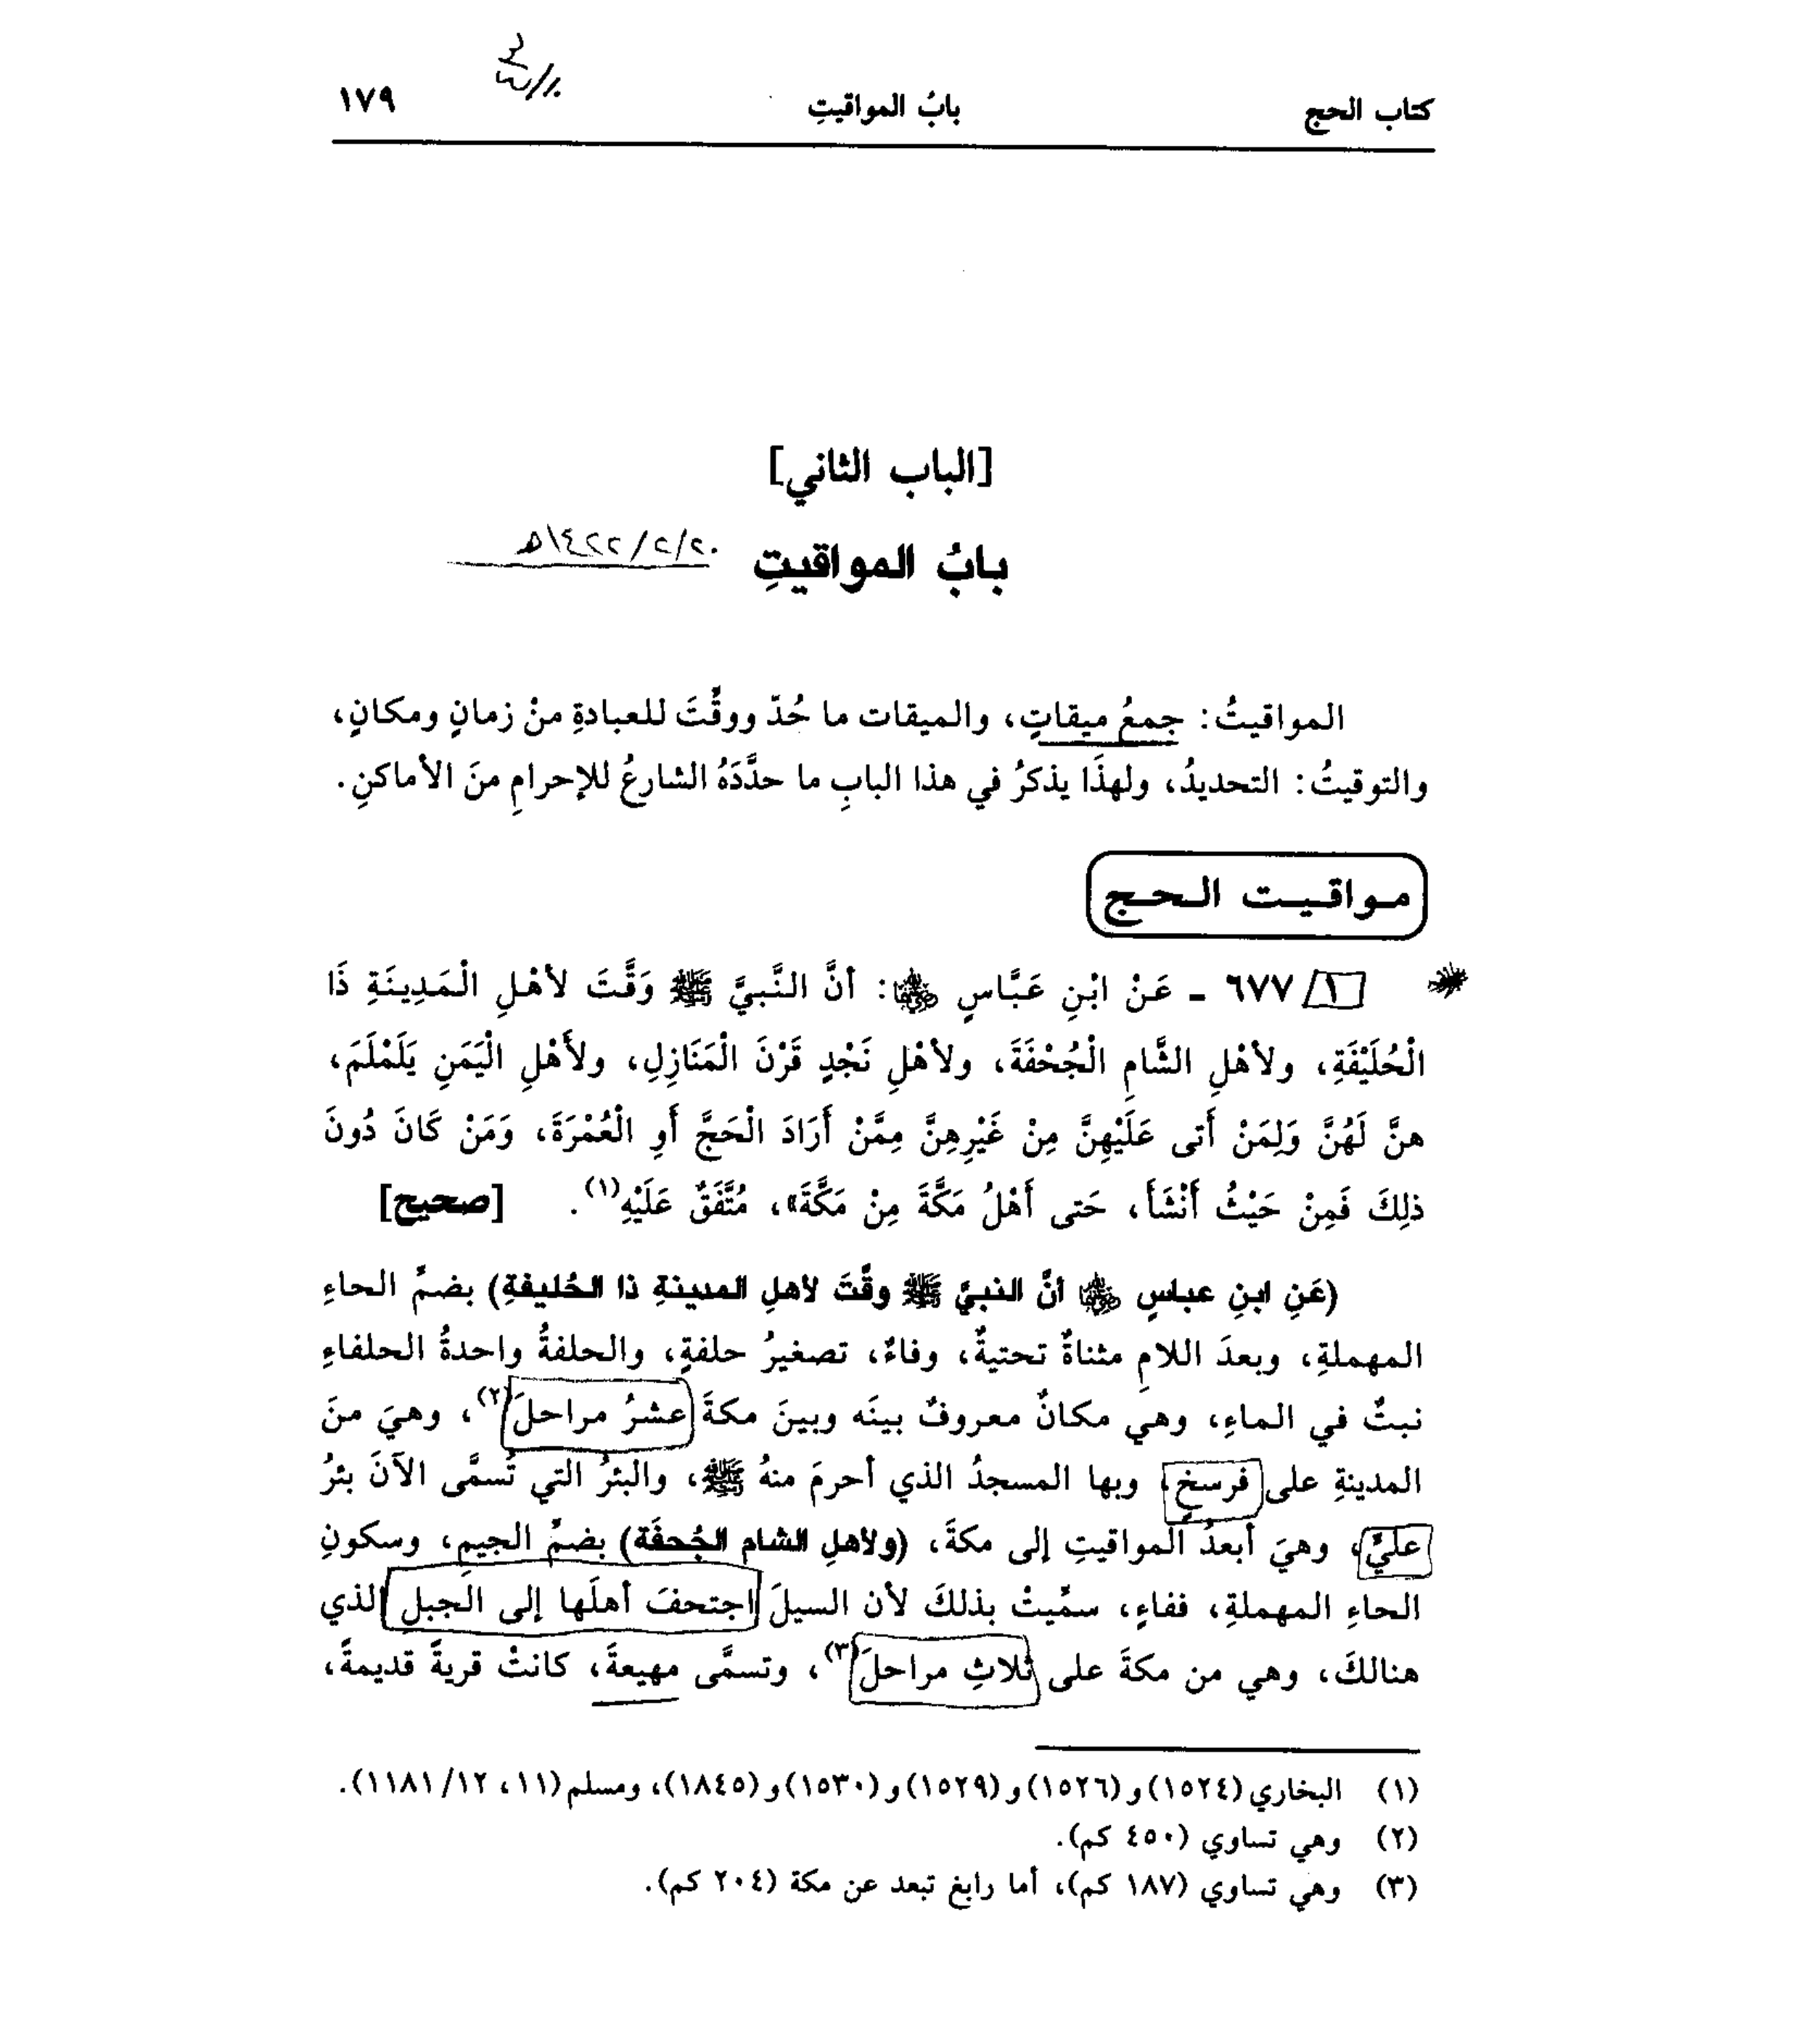 كتاب الحج باب المواقيتِ ١٧٩
[الباب الثاني]
بابُ المواقيتِ ٢٠/٢/١٤٢٢هـ
المواقيتُ: جمعُ ميقاتٍ، والميقات ما حُدّ ووقِّتَ للعبادةِ منْ زمانٍ ومكانٍ،
والتوقيتُ: التحديدُ، ولهذَا يذكرُ في هذا البابِ ما حدَّدَهُ الشارعُ للإحرامِ منَ الأماكنِ.
مواقيت الحج
١/ ٦٧٧ - عَنْ ابْنِ عَبَّاسٍ رضي الله عنهما: أنَّ النَّبيَّ ﷺ وَقَّتَ لأهْلِ الْمَدِينَةِ ذَا
الْحُلَيْفَةِ، ولأهْلِ الشَّامِ الْجُحْفَةَ، ولأهْلِ نَجْدٍ قَرْنَ الْمَنَازِلِ، ولأَهْلِ الْيَمَنِ يَلَمْلَمَ،
هنَّ لَهُنَّ وَلِمَنْ أَتى عَلَيْهِنَّ مِنْ غَيْرِهِنَّ مِمَّنْ أَرَادَ الْحَجَّ أَوِ الْعُمْرَةَ، وَمَنْ كَانَ دُونَ
ذلِكَ فَمِنْ حَيْثُ أَنْشَأَ، حَتى أَهْلُ مَكَّةَ مِنْ مَكَّةَ»، مُتَّفَقٌ عَلَيْهِ(١). [صحيح]
(عَنِ ابنِ عباسٍ رضي الله عنهما أنَّ النبيَّ ﷺ وقَّتَ لأهلِ المدينةِ ذا الحُليفةِ) بضمِّ الحاءِ
المهملةِ، وبعدَ اللامِ مثناةٌ تحتيةٌ، وفاءٌ، تصغيرُ حلفةٍ، والحلفةُ واحدةُ الحلفاءِ
نبتٌ في الماءِ، وهي مكانٌ معروفٌ بينَه وبينَ مكةَ عشرُ مراحلَ(٢)، وهيَ منَ
المدينةِ على فرسخٍ، وبها المسجدُ الذي أحرمَ منهُ ﷺ، والبئرُ التي تُسمَّى الآنَ بئرُ
عليٍّ، وهيَ أبعدُ المواقيتِ إلى مكةَ، (ولأهلِ الشام الجُحفَة) بضمِّ الجيمِ، وسكونِ
الحاءِ المهملةِ، ففاءٍ، سمِّيتْ بذلكَ لأن السيلَ اجتحفَ أهلَها إلى الجبلِ الذي
هنالكَ، وهي من مكةَ على ثلاثِ مراحلَ(٣)، وتسمَّى مهيعةَ، كانتْ قريةً قديمةً،
(١) البخاري (١٥٢٤) و(١٥٢٦) و(١٥٢٩) و(١٥٣٠) و(١٨٤٥)، ومسلم (١١، ١٢/ ١١٨١).
(٢) وهي تساوي (٤٥٠ كم).
(٣) وهي تساوي (١٨٧ كم)، أما رابغ تبعد عن مكة (٢٠٤ كم).